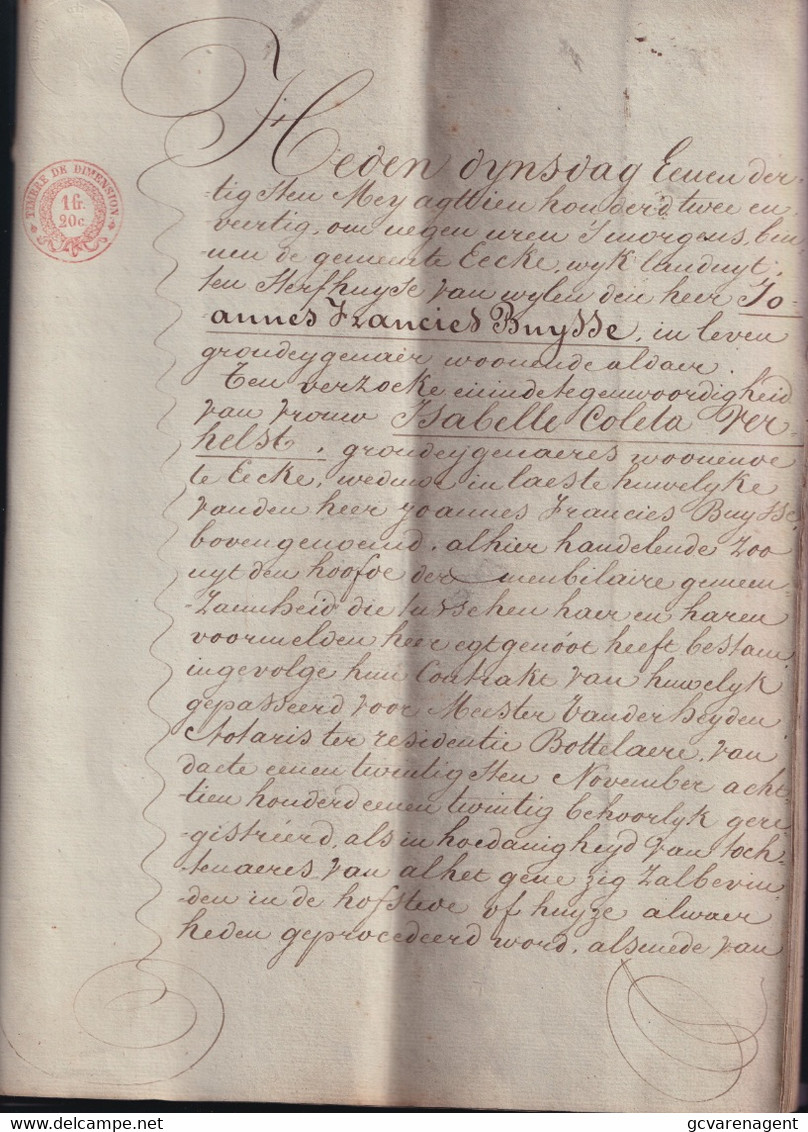 TIMBRE DE DIMENSION
1 fr.
20 c.
Heden dynsdag Eenen der-
-tigsten Mey agttien honderd twee en
veertig, om negen uren Smorgens, bin-
-nen de gemeente Eecke, wyk landuyt,
ten Sterfhuyse van wylen den heer Jo-
annes Francies Buysse, in leven
grondeygenaer woonende aldaer.
Ten verzoeke en in de tegenwoordigheid
van vrouw Isabelle Coleta Ver-
helst, grondeygenaeres woonende
te Eecke, weduwe in laeste huwelyke
vanden heer Joannes Francies Buysse
bovengenoemd, alhier handelende zoo
uyt den hoofde der meubilaire gemeen-
-zaemheid die tusschen haer en haren
voormelden heer egtgenoot heeft bestaen
ingevolge hun Contrakt van huwelyk
gepasseerd voor Meester Vanderheyden
Notaris ter residentie Bottelaere, van
daete eenen twintigsten November acht-
-tien honderd eenen twintig behoorlyk gere-
-gistréerd, als in hoedanigheyd van toch-
tenaeres van al het gene zig zal bevin
-den in de hofstede of huyze alwaer
heden geprocedeerd word, alsmede van
© delcampe.net
gcvarenagent